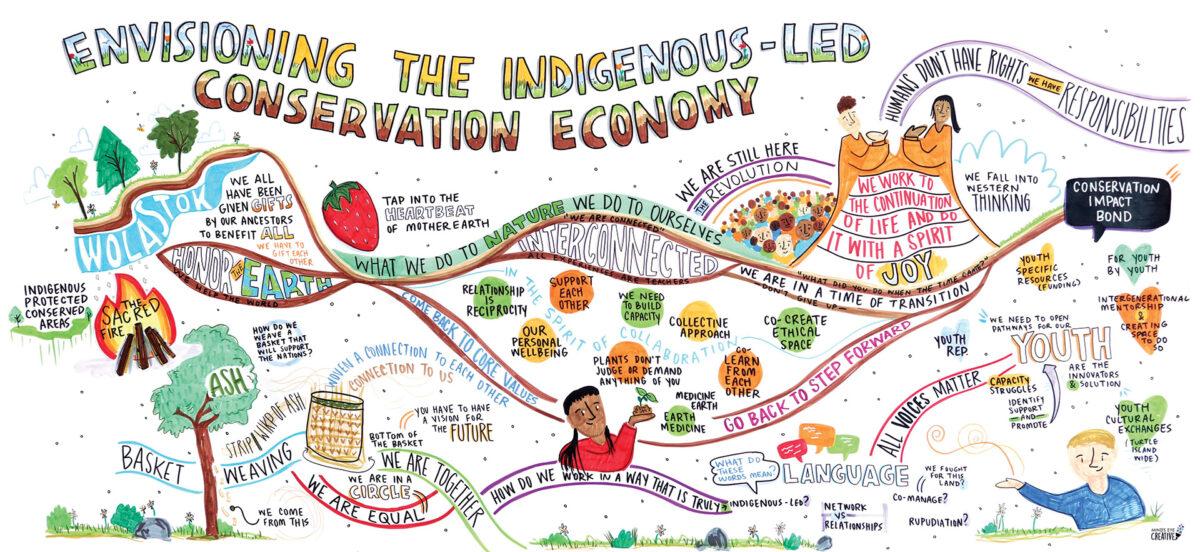 ENVISIONING THE INDIGENOUS-LED
CONSERVATION ECONOMY
HUMANS DON'T HAVE RIGHTS
WE HAVE
RESPONSIBILITIES
WOLASTOK
WE ALL
HAVE BEEN
GIVEN GIFTS
BY OUR ANCESTORS
TO BENEFIT ALL
WE HAVE TO
GIFT EACH
OTHER
TAP INTO THE
HEARTBEAT
OF MOTHER EARTH
WE ARE STILL HERE
THE REVOLUTION
WE WORK TO
THE CONTINUATION
OF LIFE AND DO
IT WITH A SPIRIT
OF JOY
WE FALL INTO
WESTERN
THINKING
CONSERVATION
IMPACT
BOND
HONOR THE EARTH
WE HELP THE WORLD
WHAT WE DO TO NATURE WE DO TO OURSELVES
"WE ARE CONNECTED"
INTERCONNECTED
ALL EXPERIENCES ARE TEACHERS
"WHAT DID YOU DO WHEN THE TIME CAME?"
WE ARE IN A TIME OF TRANSITION
DON'T GIVE UP
INDIGENOUS
PROTECTED
CONSERVED
AREAS
THE
SACRED
FIRE
IN THE SPIRIT OF COLLABORATION
RELATIONSHIP
IS
RECIPROCITY
SUPPORT
EACH
OTHER
OUR
PERSONAL
WELLBEING
WE NEED
TO BUILD
CAPACITY
COLLECTIVE
APPROACH
CO-CREATE
ETHICAL
SPACE
PLANTS DON'T
JUDGE OR DEMAND
ANYTHING OF YOU
CO-
LEARN
FROM
EACH
OTHER
MEDICINE
EARTH
EARTH
MEDICINE
COME BACK TO CORE VALUES
GO BACK TO STEP FORWARD
YOUTH
SPECIFIC
RESOURCES
(FUNDING)
FOR YOUTH
BY YOUTH
INTERGENERATIONAL
MENTORSHIP
&
CREATING
SPACE
TO DO
SO
YOUTH
REP
WE NEED TO OPEN
PATHWAYS FOR OUR
YOUTH
ARE THE
INNOVATORS
& SOLUTION
CAPACITY
STRUGGLES
IDENTIFY
SUPPORT
AND
PROMOTE
YOUTH
CULTURAL
EXCHANGES
(TURTLE
ISLAND
WIDE)
HOW DO WE
WEAVE A
BASKET THAT
WILL SUPPORT
THE NATIONS?
ASH
WOVEN A CONNECTION TO EACH OTHER
CONNECTION TO US
BASKET
STRIP/WIKP OF ASH
WEAVING
WE COME
FROM THIS
YOU HAVE TO HAVE
A VISION FOR
THE FUTURE
BOTTOM OF
THE BASKET
WE ARE IN A
CIRCLE
WE ARE EQUAL
WE ARE TOGETHER
HOW DO WE WORK IN A WAY THAT IS TRULY
INDIGENOUS-LED?
WHAT DO
THESE
WORDS MEAN?
LANGUAGE
ALL VOICES MATTER
NETWORK
VS
RELATIONSHIPS
WE FOUGHT
FOR THIS
LAND?
CO-MANAGE?
RUPUDIATION?
MIND'S EYE
CREATIVE